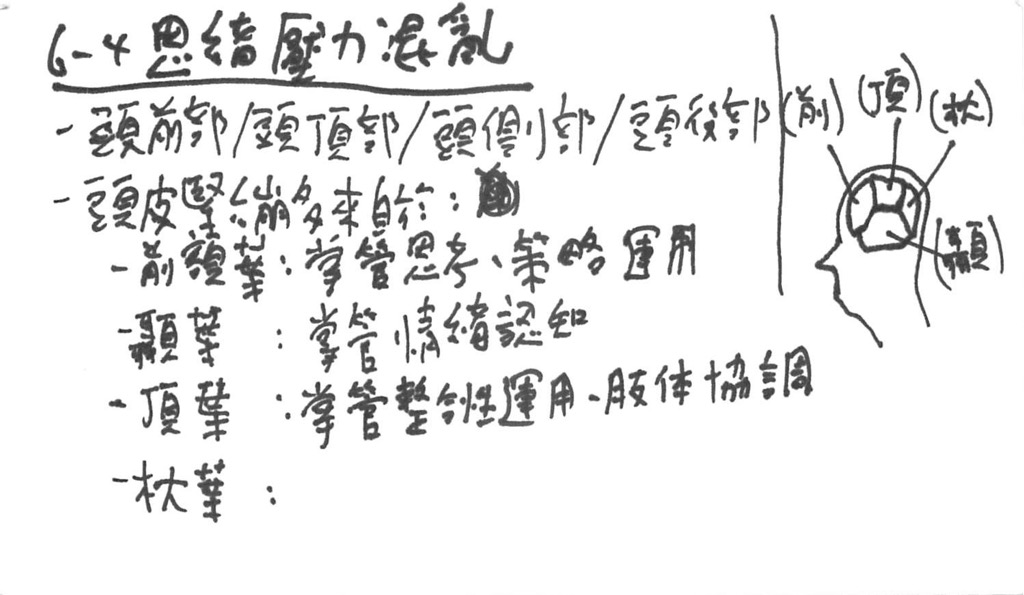 6-4 思緒壓力混亂
- 頭前部/頭頂部/頭側部/頭後部
- 頭皮緊繃多來自於:
- 前額葉:掌管思考、策略運用
- 顳葉 :掌管情緒認知
- 頂葉 :掌管整合性運用、肢体協調
- 枕葉 :
(前) (頂) (枕)
(顳)